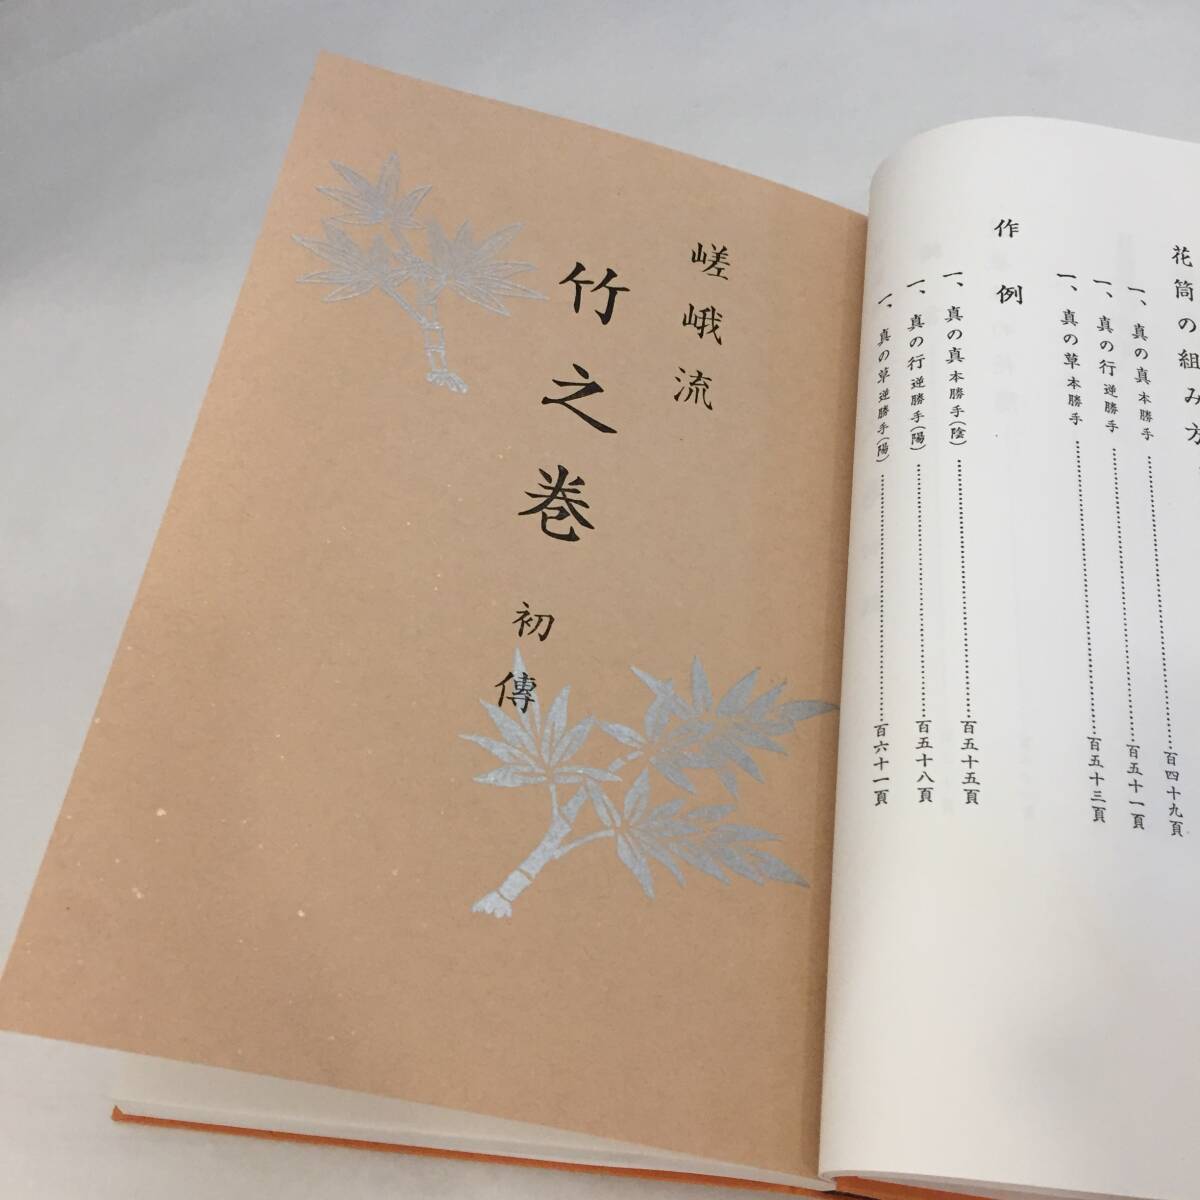 花筒の組み方
一、真の真 本勝手……百四十九頁
一、真の行 逆勝手……百五十一頁
一、真の草 本勝手……百五十三頁
作例
一、真の真 本勝手(陰)……百五十五頁
一、真の行 逆勝手(陽)……百五十八頁
一、真の草 逆勝手(陽)……百六十一頁
嵯峨流
竹之巻 初傳